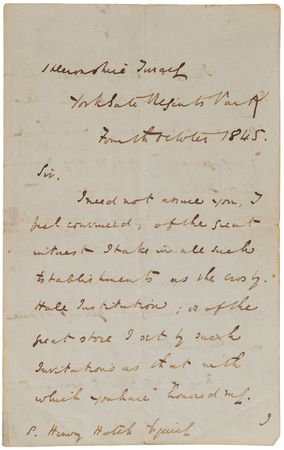 1 Devonshire Terrace
York Gate Regents Park
Fourth October 1845.
Sir.
I need not assure you, I
feel convinced, of the great
interest I take in all such
Establishments as the Crosby
Hall Institution; or of the
great store I set by such
Invitations as that with
which you have honored me.
Henry Hatch Esquire